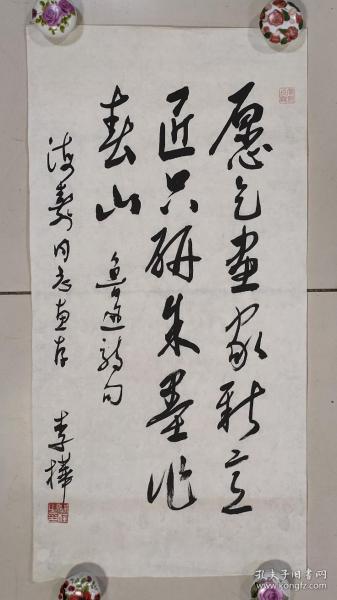 愿乞画家新意
匠只研朱墨作
春山 鲁迅诗句
同志惠存
李桦
孔夫子旧书网